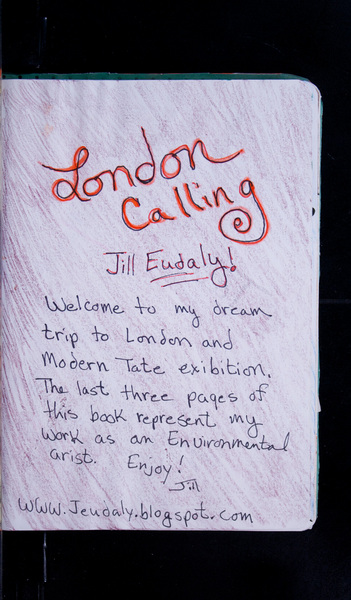 London
Calling
Jill Eudaly!
Welcome to my dream
trip to London and
Modern Tate exibition.
The last three pages of
this book represent my
work as an Environmental
arist. Enjoy!
Jill
www.Jeudaly.blogspot.com